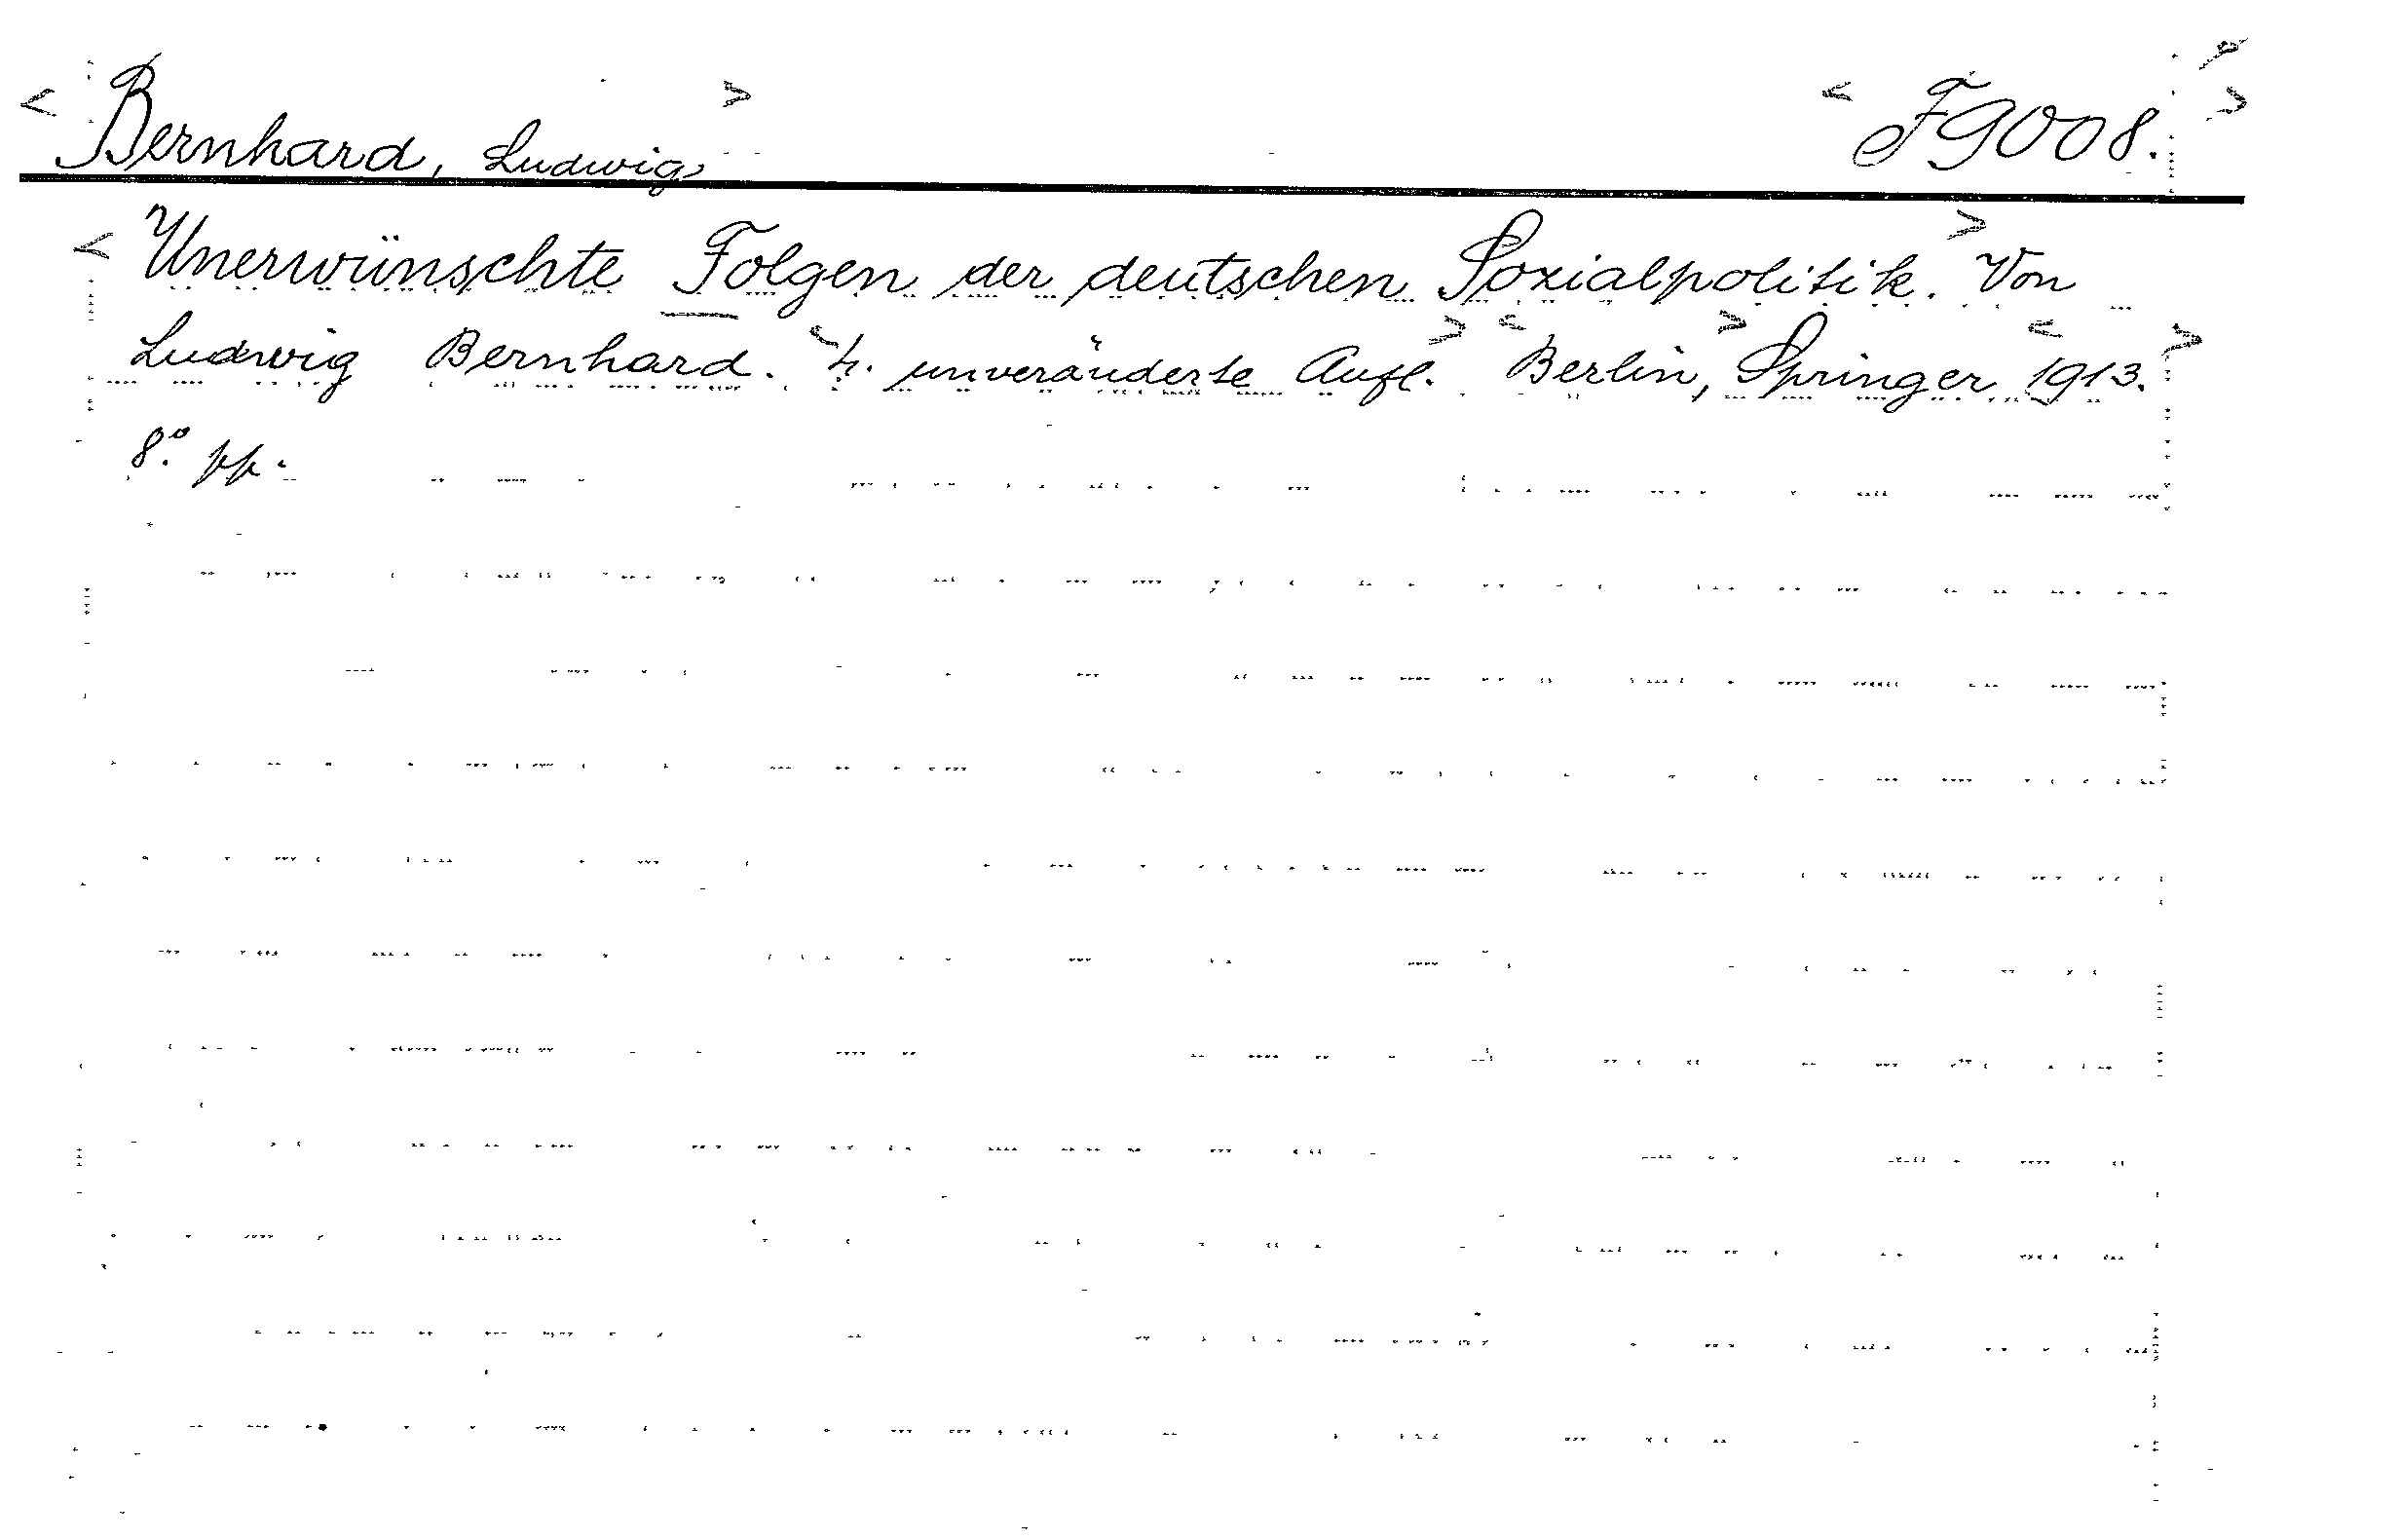 < Bernhard, Ludwig > < F9008. >
< Unerwünschte Folgen der deutschen Sozialpolitik. > Von
Ludwig Bernhard. < 4. unveränderte Aufl. > < Berlin, > Springer < 1913. >
8.° pp.